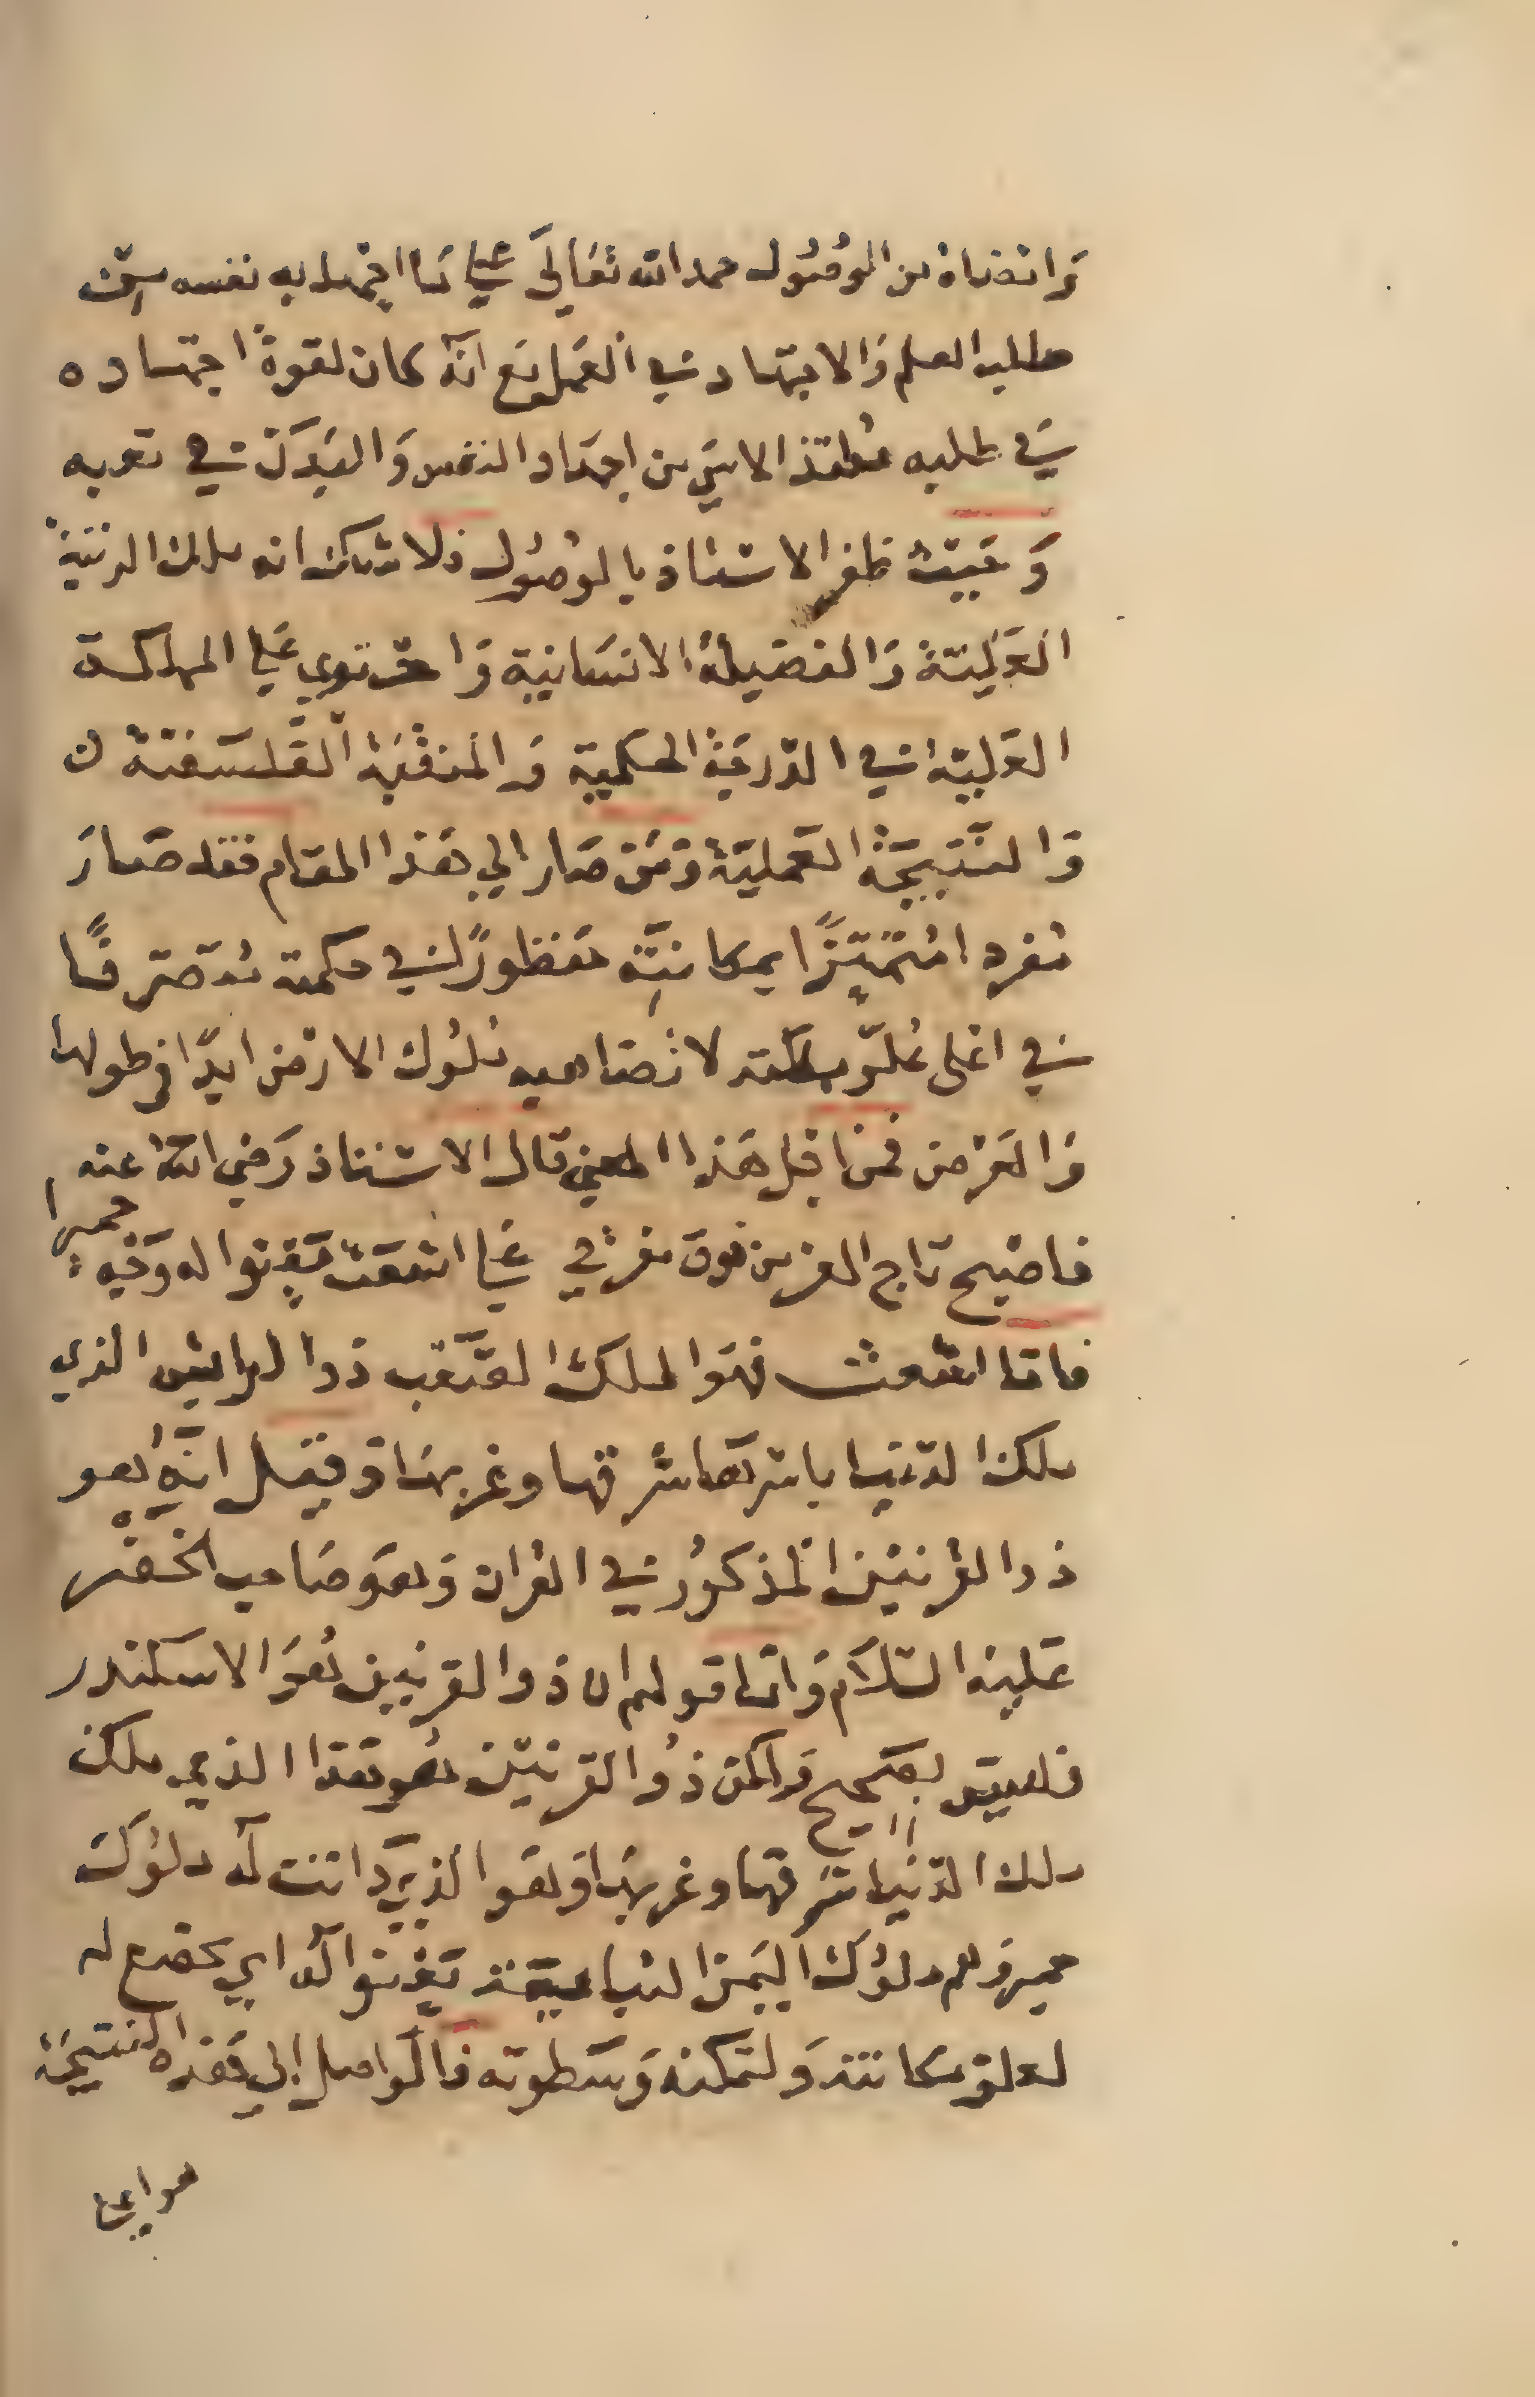 وانضاه من الوصول حمد الله تعالي علي ما اجهد به نفسه من
طلب العلم والاجتهاد في العمل مع انه كان لقوة اجتهاده
في طلبه من اجهاد النفس والبدن في تعبه
وحيث ظفر الاستاذ بالوصول فلا شك انه ملك الرتبة
العلية والفضيلة الانسانية واحتوي علي المملكة
العلية في الدرجة الحكمية والمنقبة الفلسفية
والنتيجة العملية ومن صار الي هذا المقام فقد صار
مفردا متميزا بمكانته في حكمته متصرفا
في اعلي علو مملكته لا تضاهيه ملوك الارض ابدا في طولها
والعرض فمن اجل هذا المعني قال الاستاذ رضي الله عنه
فاصبح تاج العز من فوق مفرقي علي اشعث تعنوا له وجه حميرا
فاما اشعث فهو الملك الملقب ذوا الرايش الذي
ملك الدنيا باسرها شرقها وغربها وقيل انه هو
ذوا القرنين المذكور في القران وهو صاحب الخضر
عليه السلام واما قولهم ان ذوا القرنين هو الاسكندر
فليس بصحيح ولكن ذوا القرنين هو هذا الذي ملك
ملك الدنيا شرقها وغربها وهو الذي دانت له ملوك
حمير وهم ملوك اليمن التبابعة تعنوا له اي يخضع له
لعلو مكانته ولتمكنه وسطوته فالواصل الي هذه النتيجة
هو اعلي